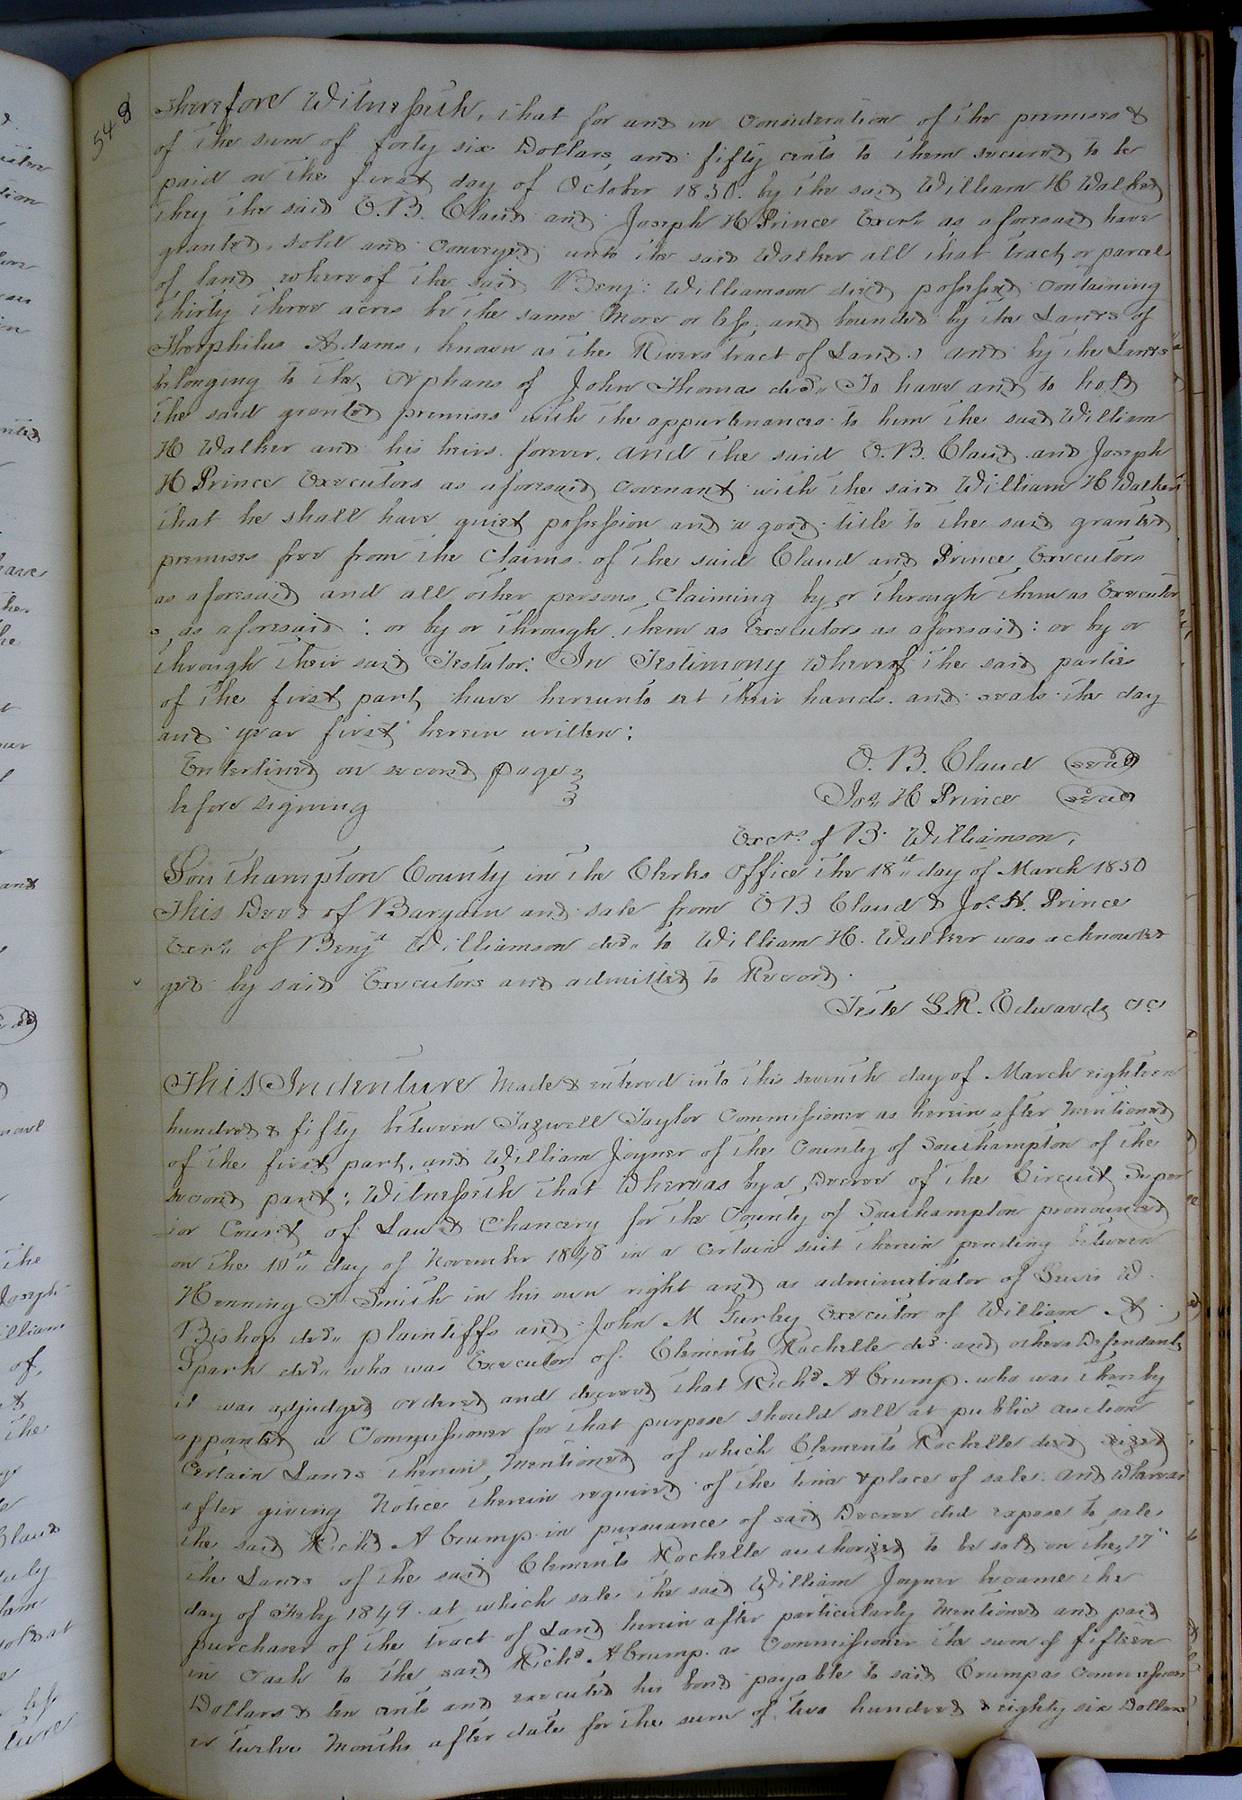 548
Therefore Witnesseth, that for and in Consideration of the premises &
of the sum of forty six Dollars and fifty cents to them secured to be
paid on the first day of October 1850. by the said William H Walker
they the said O. B. Claud and Joseph H Prince Exors as aforesaid have
granted, sold and conveyed unto the said Walker all that tract or parcel
of land whereof the said Benj: Williamson died possessed containing
thirty three acres be the same more or less, and bounded by the Lands of
Theophilus Adams, known as the Rivers tract of Land, and by the Lands
belonging to the orphans of John Thomas decd. To have and to hold
the said granted premises with the appurtenances to him the said William
H Walker and his heirs forever. and the said O. B. Claud and Joseph
H Prince Executors as aforesaid covenant with the said William H Walker
that he shall have quiet possession and a good title to the said granted
premises free from the Claims of the said Claud and Prince Executors
as aforesaid and all other persons Claiming by or through them as Executor
s as aforesaid : or by or through them as Executors as aforesaid : or by or
through their said Testator: In Testimony whereof the said parties
of the first part, have hereunto set their hands and seals the day
and year first herein written:
Enterlined on second page
before signing
O. B. Claud seal
Jos. H Prince seal
Exctrs of B. Williamson,
Southampton County in the Clerks office the 18th day of March 1850
This Deed of Bargain and sale from O B Claud & Jos. H. Prince
Exors of Benja Williamson decd. to William H. Walker was acknowled
ged by said Executors and admitted to Record.
Teste L. R. Edwards CC
This Indenture Made & entered into this seventh day of March eighteen
hundred & fifty between Tazwell Taylor Commissioner as herein after mentioned
of the first part, and William Joyner of the County of Southampton of the
second part: Witnesseth that Whereas by a Decree of the Circuit Super
ior Court of Law & Chancery for the County of Southampton pronounced
on the 10th day of November 1848 in a certain suit therein pending between
Henning T Smith in his own right and as administrator of Lewis W.
Bishop decd. plaintiffs and John M Gurley Executor of William A
Spark decd. who was Executor of Clements Rochelle decd and others Defendants
it was adjudged ordered and decreed that Richd A Crump who was thereby
appointed a Commissioner for that purpose should sell at public auction
Certain Lands therein mentioned of which Clements Rochelle died seized
after giving Notice therein required of the time & place of sale. and Whereas
the said Richd A Crump in pursuance of said Decree did expose to sale
the Lands of the said Clements Rochelle authorized to be sold on the 17"
day of Feby 1849. at which sale the said William Joyner became the
purchaser of the tract of Land herein after particularly mentioned and paid
in Cash to the said Richd A Crump as Commissioner the sum of fifteen
Dollars & ten cents and executed his bond payable to said Crump as Commissioner
at twelve Months after date for the sum of two hundred & eighty six Dollars